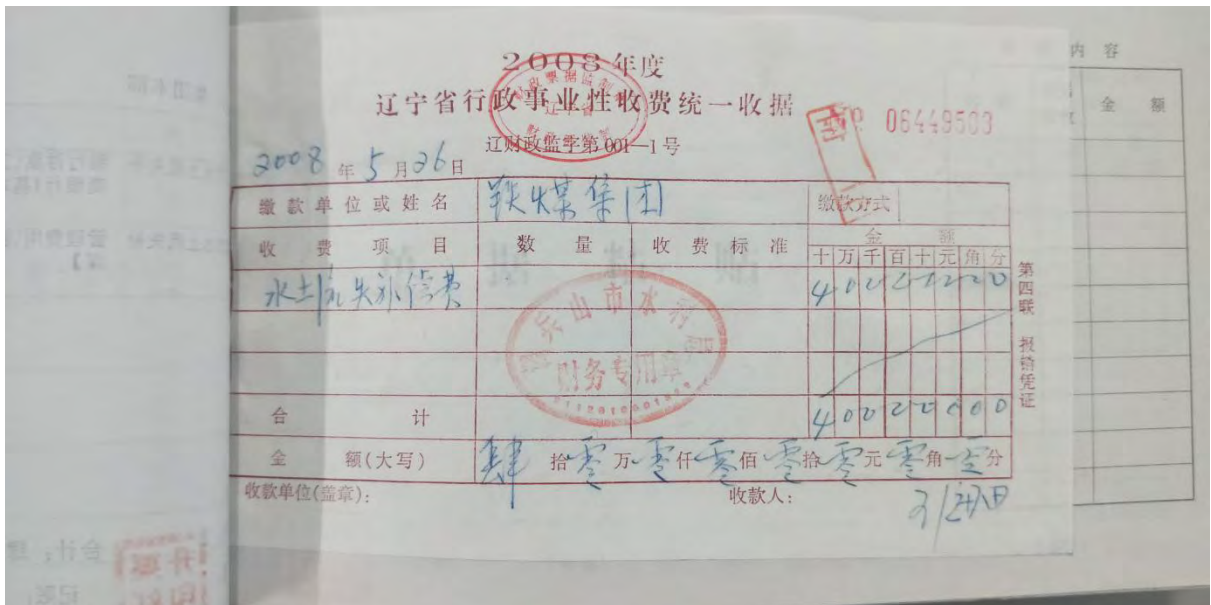 2008年度
辽宁省行政事业性收费统一收据
辽财政监字第001—1号
06449503
2008年5月26日
缴款单位或姓名 铁煤集团 缴款方式
收费项目 数量 收费标准 金额
十万千百十元角分
水土流失补偿费 40000000
合计 40000000
金额(大写) 肆拾零万零仟零佰零拾零元零角零分
收款单位(盖章): 收款人:
第四联 报销凭证
财政票据监制章
辽宁省
调兵山市水利局
财务专用章
内容
金额